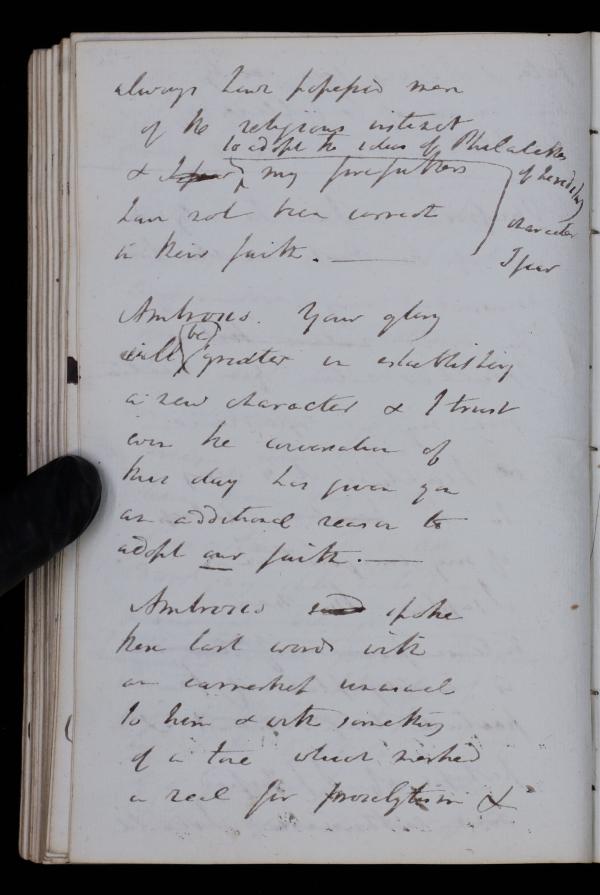 always have possessed more
of the religious instinct
to adopt the ideas of Philalethes
of hereditary
character
I fear
& I fear my forefathers
have not been correct
in their faith. —
Ambrosio. Your glory
will be greater in establishing
a new character & I trust
even the conversation of
this day has given you
an additional reason to
adopt our faith. —
Ambrosio said spoke
these last words with
an earnestness unusual
to him & with something
of a tone which marked
a zeal for proselytism &